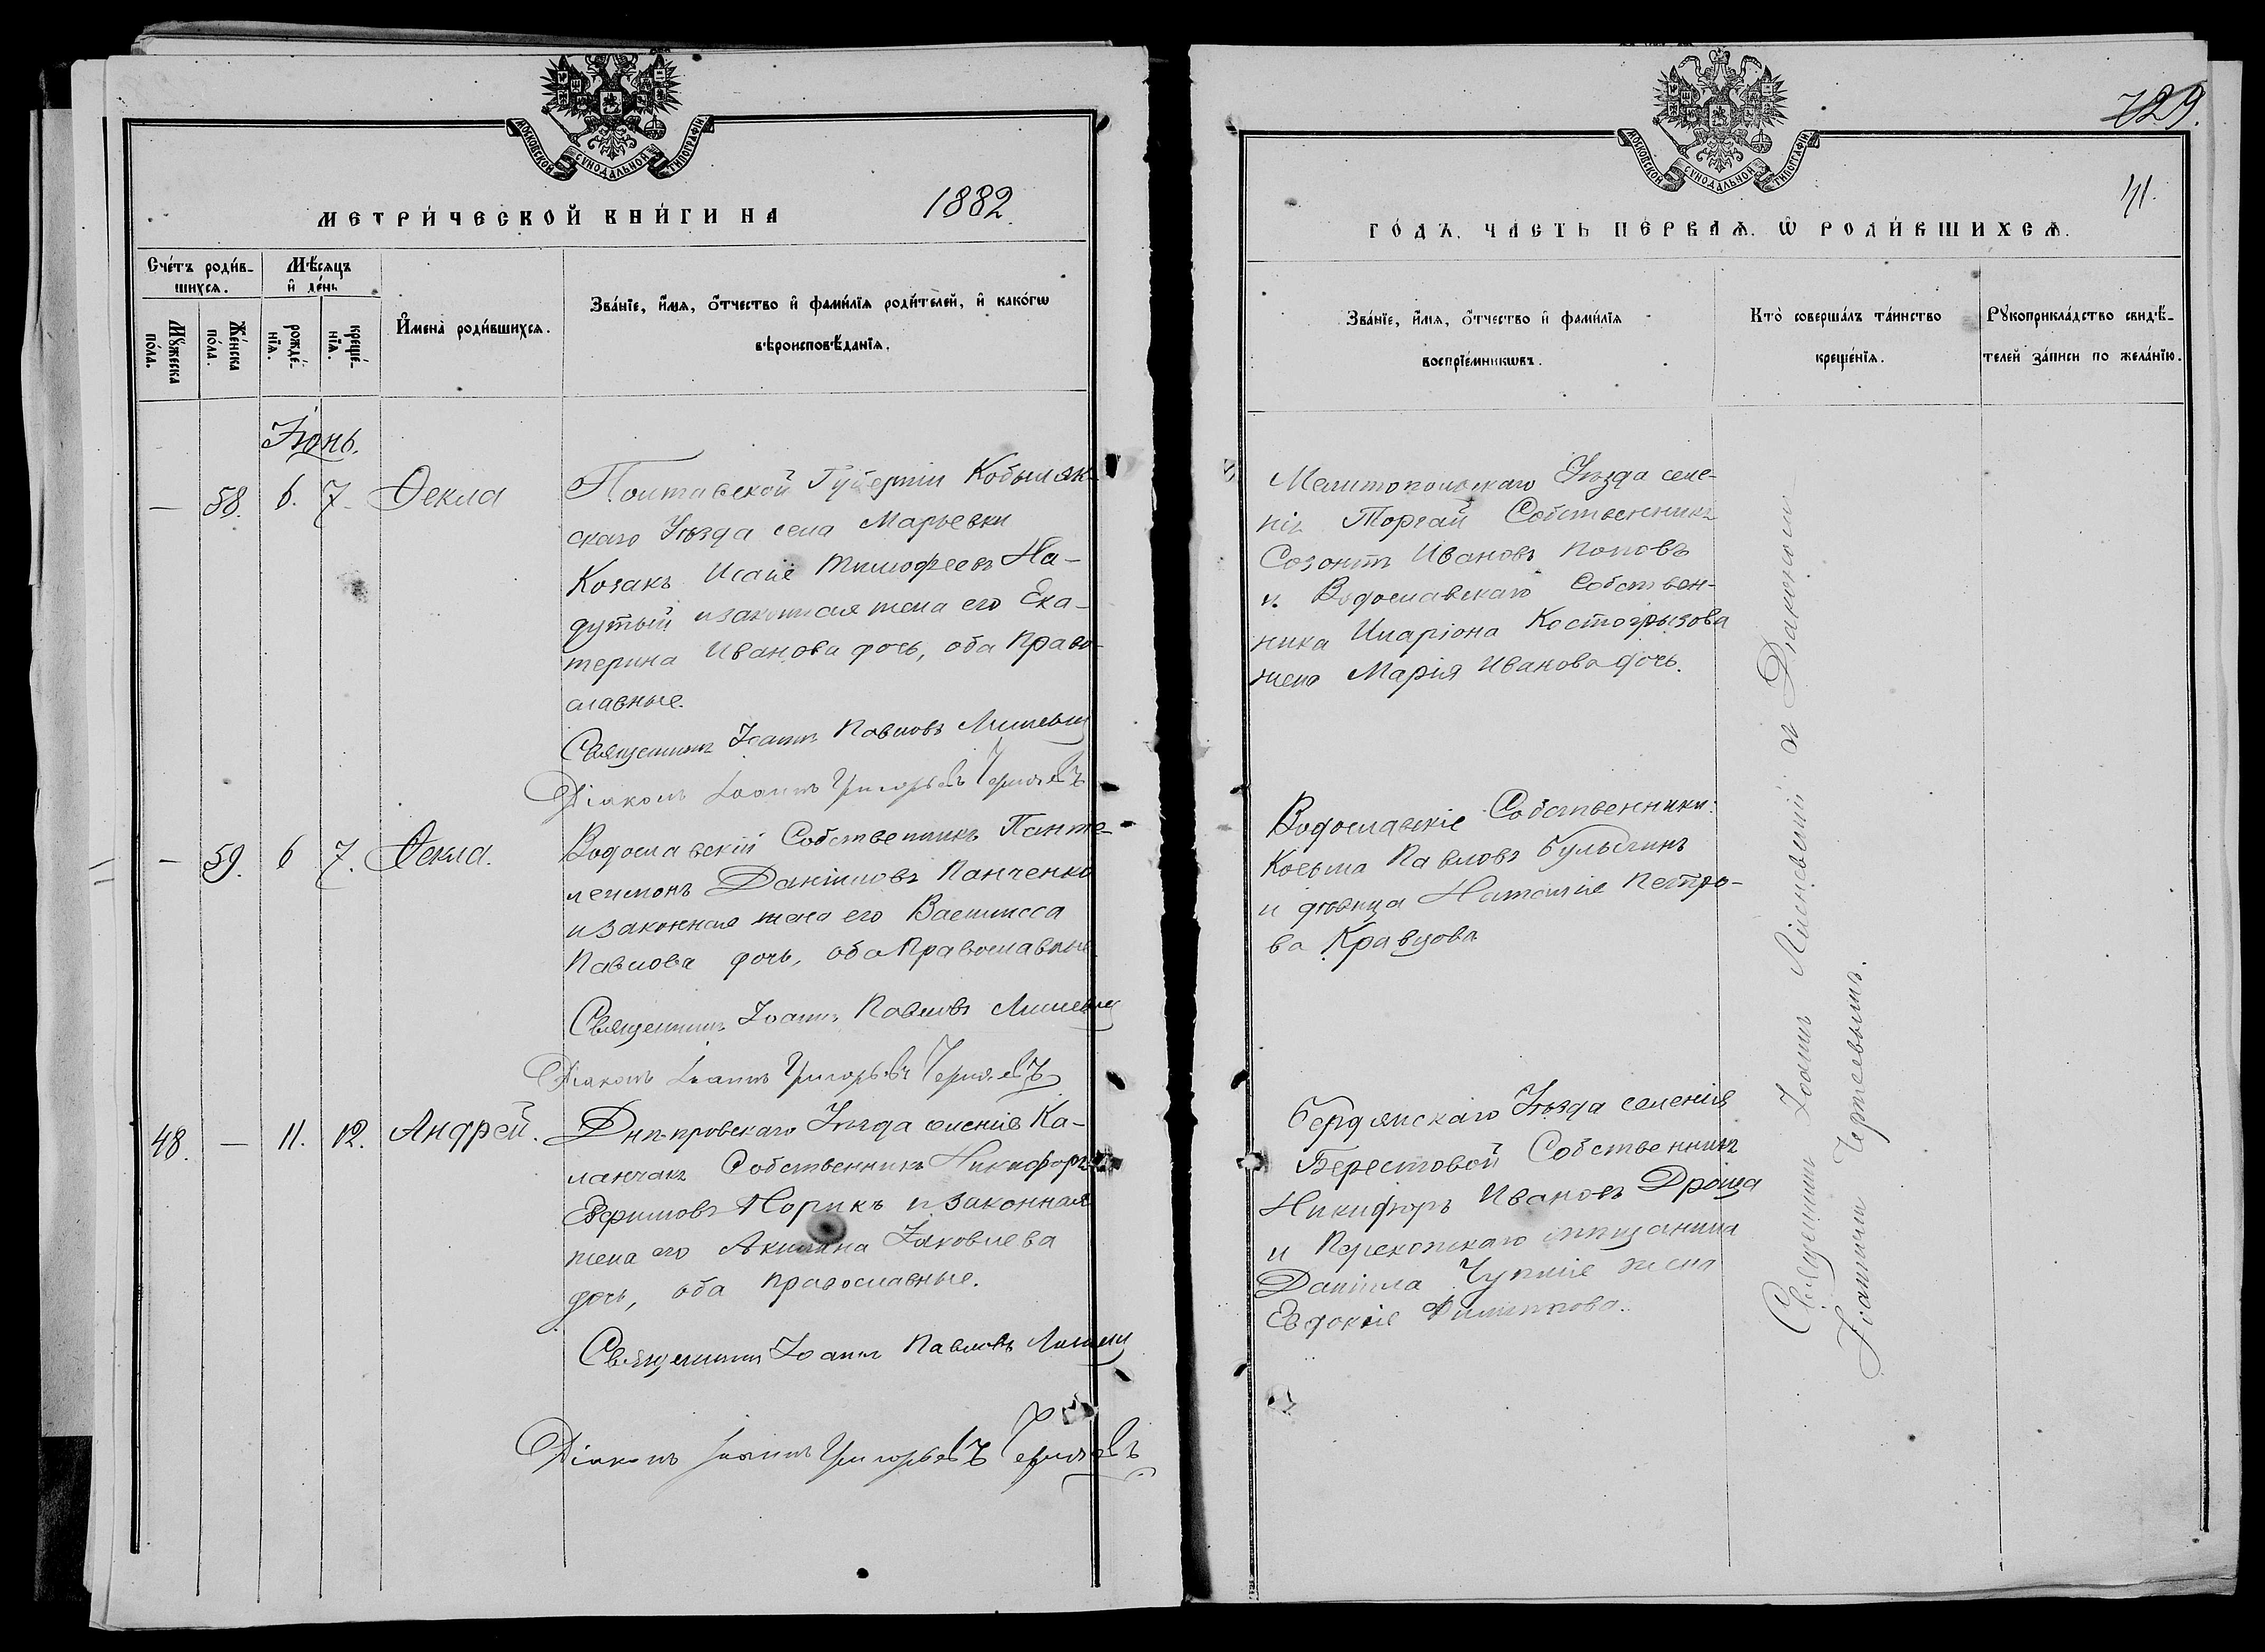 МОСКОВСКОЙ СѴНОДАЛЬНОЙ ТИПОГРАФІИ
МЕТРИ́ЧЕСКОЙ КНИ́ГИ НА 1882.
Сче́тъ роди́в-
шихсѧ.
Мѣ́сѧцъ
и҆ де́нь
Мꙋ́жеска
по́ла.
Же́нска
по́ла.
рожде́-
нїѧ.
креще́-
нїѧ.
И҆мена̀ роди́вшихсѧ.
Зва́нїе, и҆́мѧ, ѻ҆́тчество и҆ фами́лїѧ роди́телей, и҆ како́гѡ
вѣроисповѣ́данїѧ.
Іюнь.
— 58. 6. 7. Ѳекла
Полтавской Губерніи Кобыляк-
скаго Уѣзда села Марьевки
Козакъ Исаія Тимофеевъ На-
дутый и законная жена его Ека-
терина Иванова дочь, оба Право-
славные.
Священникъ Іоаннъ Павловъ
Діаконъ Іоаннъ Григорьевъ
— 59. 6 7. Ѳекла.
Водославскій Собственникъ Панте-
леимонъ Даніиловъ Панченко
и законная жена его Василисса
Павлова дочь, оба Православные
Священникъ Іоаннъ Павловъ
Діаконъ Іоаннъ Григорьевъ
48. — 11. 12. Андрей.
Днѣпровскаго Уѣзда селенія Ка-
ланчакъ Собственникъ Никифоръ
Ефимовъ Норикъ и законная
жена его Акилина Іаковлева
дочь, оба православные.
Священникъ Іоаннъ Павловъ
Діаконъ Іоаннъ Григорьевъ
729.
МОСКОВСКОЙ СѴНОДАЛЬНОЙ ТИПОГРАФІИ
41.
ГО́ДЪ. ЧАСТЬ ПЕ́РВАѦ. Ѡ҆ РОДИ́ВШИХСѦ.
Зва́нїе, и҆́мѧ, ѻ҆́тчество и҆ фами́лїѧ
воспрїе́мникѡвъ.
Кто̀ соверша́лъ та́инство
креще́нїѧ.
Рꙋкоприкла́дство свидѣ́-
телей за́писи по жела́нїю.
Мелитопольскаго Уѣзда селе-
нія Торгай Собственникъ
Созонтъ Ивановъ Поповъ
и Водославскаго Собствен-
ника Иларіона Костогрызова
жена Марія Иванова дочь.
Водославскіе Собственники:
Косьма Павловъ Булыгинъ
и дѣвица Наталія Петро-
ва Кравцова
Бердянскаго Уѣзда селенія
Берестовой Собственникъ
Никифоръ Ивановъ Дроща
и Перекопскаго мѣщанина
Даніила жена
Евдокія Филиппова.
Священникъ Іоаннъ и Діакономъ
Іоанномъ